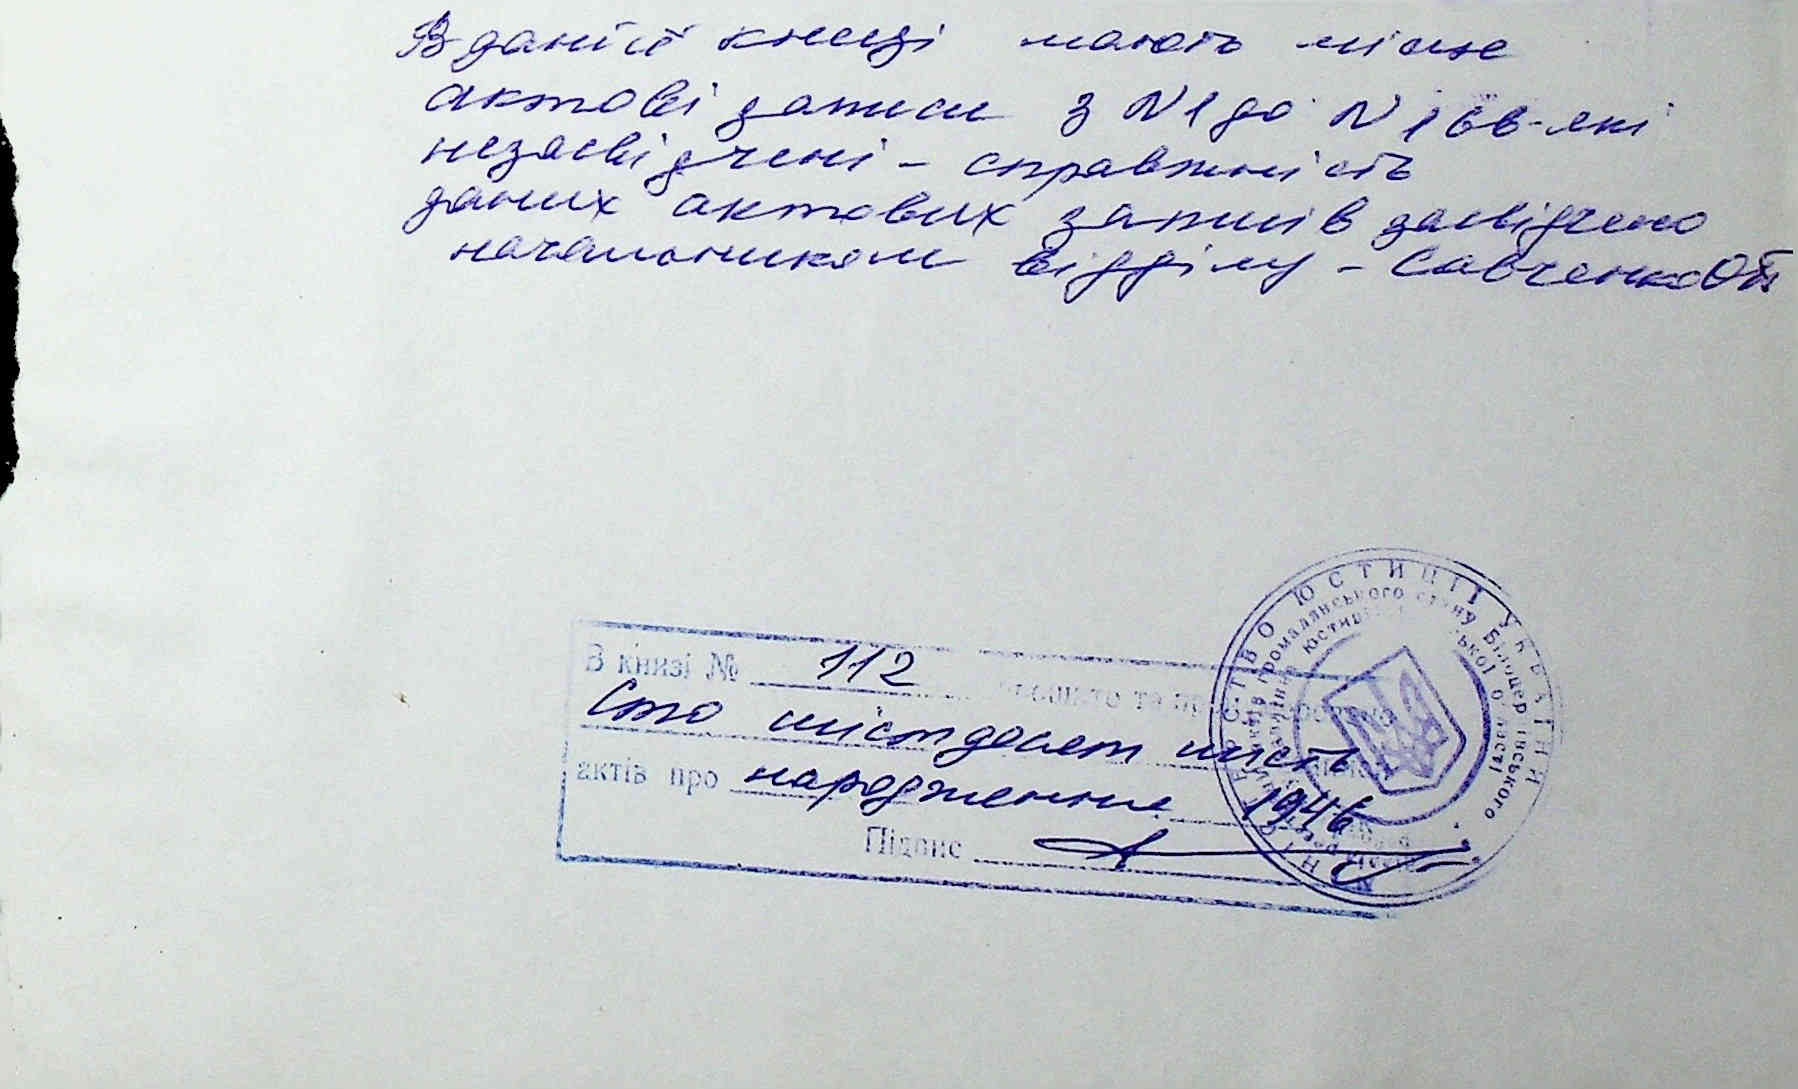 В даній книзі мають місце
актові записи з N1 до N 166 - які
незасвідчені - справжність
даних актових записів засвідчено
начальником відділу - Савченко ОП
В книзі № 112
Сто шістдесят шість
актів про народження 1946
Підпис
МІНІСТЕРСТВО ЮСТИЦІЇ УКРАЇНИ
актів громадянського стану Білоцерківського
юстиції області